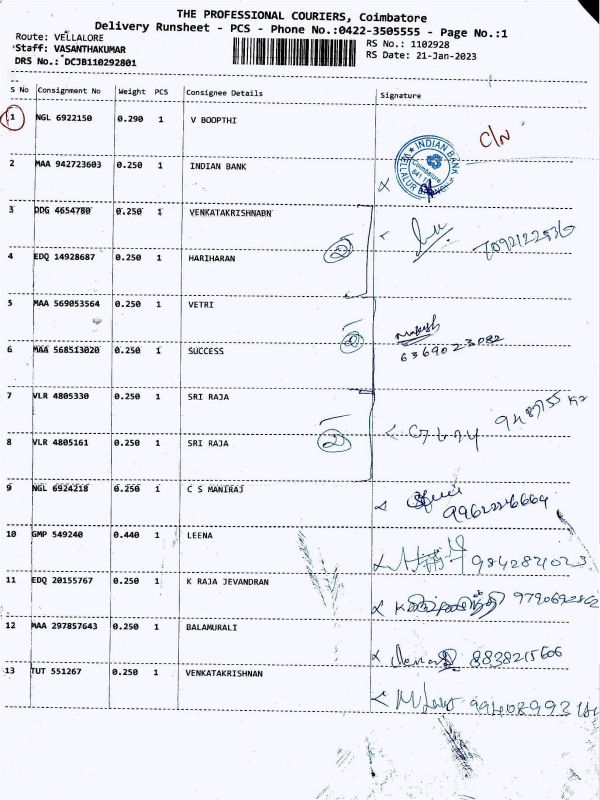 THE PROFESSIONAL COURIERS, Coimbatore
Delivery Runsheet - PCS - Phone No.:0422-3505555 - Page No.:1
Route: VELLALORE
Staff: VASANTHAKUMAR
DRS No.: DCJB110292801
RS No.: 1102928
RS Date: 21-Jan-2023
S No Consignment No Weight PCS Consignee Details Signature
1 NGL 6922150 0.290 1 V BOOPTHI C/N
2 MAA 942723603 0.250 1 INDIAN BANK
INDIAN BANK
Coimbatore
VELLALUR BRANCH
3 DDG 4654780 0.250 1 VENKATAKRISHNABN
4 EDQ 14928687 0.250 1 HARIHARAN
2
5 MAA 569053564 0.250 1 VETRI
6 MAA 568513020 0.250 1 SUCCESS
2
6369023082
7 VLR 4805330 0.250 1 SRI RAJA
8 VLR 4805161 0.250 1 SRI RAJA
2
9 NGL 6924218 0.250 1 C S MANIRAJ
9962226664
10 GMP 549240 0.440 1 LEENA
9842821023
11 EDQ 20155767 0.250 1 K RAJA JEVANDRAN
12 MAA 297857643 0.250 1 BALAMURALI
8838215606
13 TUT 551267 0.250 1 VENKATAKRISHNAN